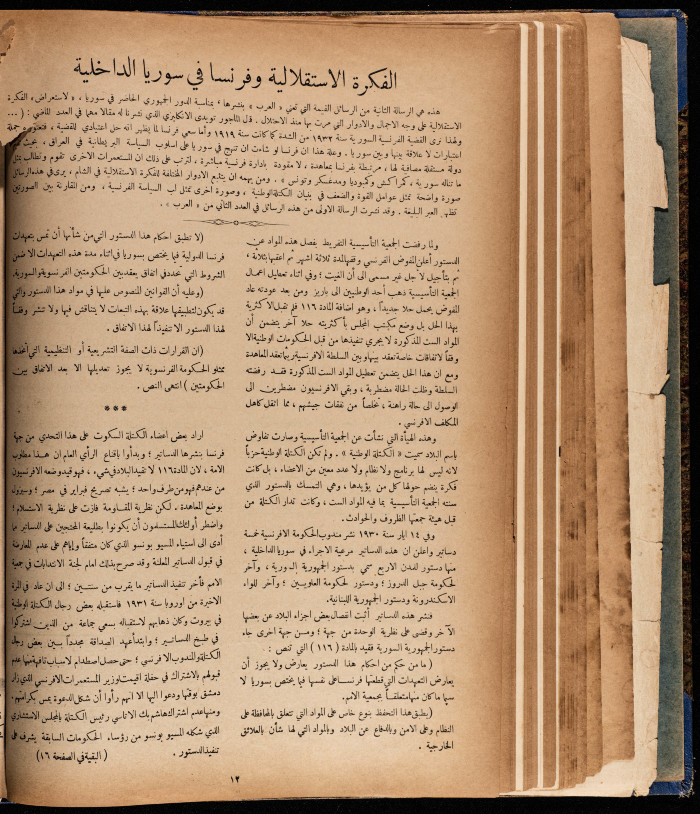 الفكرة الاستقلالية وفرنسا في سوريا الداخلية
هذه هي الرسالة الثانية من الرسائل القيمة التي تعني « العرب » بنشرها ، بمناسبة الدور الجمهوري الحاضر في سوريا ، « لاستعراض الفكرة
الاستقلالية على وجه الاجمال والادوار التي مرت بها منذ الاحتلال . قال الماجور تويدى الانكليزي الذي نشرنا له مقالا مهما في العدد الماضي : ( ...
ولهذا نرى القضية الفرنسية السورية سنة ١٩٣٢ من الشدة كما كانت سنة ١٩١٩ وأما سعي فرنسا لما يظهر انه حل اعتيادي للقضية ، فتعوزه جملة
اعتبارات لا علاقة بينها وبين سوريا . وعلة هذا ان فرنسا لو شاءت ان تنهج في سوريا على اسلوب السياسة البريطانية في العراق ، بحيث
دولة مستقلة مصافية لها ، مرتبطة بفرنسا بمعاهدة ، لا مقودة بادارة فرنسية مباشرة ، لترتب على ذلك ان المستعمرات الأخرى تقوم وتطالب بمثل
ما تناله سورية ، كمراكش وكمبوديا ومدغسكر وتونس » . ومن يهمه ان يتتبع الادوار المختلفة للفكرة الاستقلالية في الشام ، يرى في هذه الرسائل
صورة واضحة تمثل عوامل القوة والضعف في بنيان الكتلة الوطنية ، وصورة اخرى تمثل لب السياسة الفرنسية ، ومن المقارنة بين الصورتين
تظهر العبر البليغة . وقد نشرت الرسالة الاولى من هذه الرسائل في العدد الثاني من « العرب » .
ولما رفضت الجمعية التأسيسية التفريط بفصل هذه المواد عن
الدستور أعلن المفوض الفرنسي وقفها لمدة ثلاثة اشهر ثم اعقبها بثلاثة ،
ثم بتأجيل لأجل غير مسمى الى أن الغيت ؛ وفي اثناء تعطيل اعمال
الجمعية التأسيسية ذهب أحد الوطنيين الى باريز ومن بعد عودته عاد
المفوض يحمل حلا جديداً ، وهو اضافة المادة ١١٦ فلم تقبل الاكثرية
بهذا الحل بل وضع مكتب المجلس بأكثريته حلا آخر يتضمن أن
المواد الست المذكورة لا يجري تنفيذها من قبل الحكومات الوطنية الا
وفقاً لاتفاقات خاصة تعقد بينها وبين السلطة الافرنسية ريثما تعقد المعاهدة
ومع ان هذا الحل يتضمن تعطيل المواد الست المذكورة فقد رفضته
السلطة وظلت الحالة مضطربة ، وبقي الافرنسيون مضطرين الى
الوصول الى حالة راهنة ، تخلصاً من نفقات جيشهم ، مما اثقل كاهل
المكلف الافرنسي .
وهذه الهيأة التي نشأت عن الجمعية التأسيسية وصارت تفاوض
باسم البلاد سميت « الكتلة الوطنية » . ولم تكن الكتلة الوطنية حزباً
لانه ليس لها برنامج ولا نظام ولا عدد معين من الاعضاء ، بل كانت
فكرة ينضم حولها كل من يؤيدها ، وهي التمسك بالدستور الذي
سنته الجمعية التأسيسية بما فيه المواد الست ، وكانت تدار الكتلة من
قبل هيئة جمعتها الظروف والحوادث .
وفي ١٤ ايار سنة ١٩٣٠ نشر مندوب الحكومة الافرنسية خمسة
دساتير واعلن ان هذه الدساتير مرعية الاجراء في سوريا الداخلية ،
منها دستور للمدن الاربع سمي بدستور الجمهورية السورية ، وآخر
لحكومة جبل الدروز ؛ ودستور لحكومة العلويين ؛ وآخر للواء
الاسكندرونة ودستور الجمهورية اللبنانية .
فنشر هذه الدساتير أثبت انفصال بعض اجزاء البلاد عن بعضها
الآخر وقضى على نظرية الوحدة من جهة ؛ ومن جهة اخرى جاء
دستور الجمهورية السورية فقيد بالمادة ( ١١٦ ) التي تنص :
( ما من حكم من احكام هذا الدستور يعارض ولا يجوز أن
يعارض التعهدات التي قطعتها فرنسا على نفسها فيما يختص بسوريا لا
سيما ما كان منها متعلقاً بجمعية الامم .
( يطبق هذا التحفظ بنوع خاص على المواد التي تتعلق بالمحافظة على
النظام وعلى الامن وبالدفاع عن البلاد وبالمواد التي لها شأن بالعلائق
الخارجية .
( لا تطبق احكام هذا الدستور التي من شأنها أن تمس بتعهدات
فرنسا الدولية فيما يختص بسوريا في اثناء مدة هذه التعهدات الا ضمن
الشروط التي تحدد في اتفاق يعقد بين الحكومتين الفرنسوية والسورية.
( وعليه أن القوانين المنصوص عليها في مواد هذا الدستور والتي
قد يكون لتطبيقها علاقة بهذه التبعات لا يتناقش فيها ولا تنشر وفقاً
لهذا الدستور الا تنفيذاً لهذا الاتفاق .
( ان القرارات ذات الصفة التشريعية أو التنظيمية التي اتخذها
ممثلو الحكومة الفرنسوية لا يجوز تعديلها الا بعد الاتفاق بين
الحكومتين ) انتهى النص .
***
اراد بعض أعضاء الكتلة السكوت على هذا التحدي من جهة
فرنسا بنشرها الدساتير ؛ وبدأوا باقناع الرأي العام ان هذا مطلوب
الامة ، لان المادة ١١٦ لا تقيد البلاد في شيء ، فهو قيد وضعه الافرنسيون
من عندهم فهو من طرف واحد ؛ يشبه تصريح فبراير في مصر ؛ وسيزول
بوضع المعاهدة . لكن نظرية المقاومة فازت على نظرية الاستسلام ؛
واضطر أولئك المستسلمون أن يكونوا بطليعة المحتجين على الدساتير مما
أدى الى استياء المسيو بونسو الذي كان متفقاً واياهم على عدم المعارضة
في قبول الدساتير المعلنة وقد صرح بذلك امام لجنة الانتدابات في جمعية
الامم فأخر تنفيذ الدساتير ما يقرب من سنتين ؛ الى ان عاد في المرة
الاخيرة من اوروبا سنة ١٩٣١ فاستقبله بعض رجال الكتلة الوطنية
في بيروت وكان ذهابهم لاستقباله بسعي جماعة من الذين اشتركوا
في طبخ الدساتير ؛ وابتدأ عهد الصداقة مجدداً بين بعض رجال
الكتلة والمندوب الافرنسي ؛ حتى حصل اصطدام لاسباب تافهة منها عدم
قبولهم بالاشتراك في حفلة اقيمت لوزير المستعمرات الافرنسي الذي زار
دمشق بوقتها ودعوا اليها الا انهم رأوا أن شكل الدعوة يمس بكرامتهم،
ومنها عدم اشتراك هاشم بك الاتاسي رئيس الكتلة بالمجلس الاستشاري
الذي شكله المسيو بونسو من رؤساء الحكومات السابقة يشرف على
تنفيذ الدستور .
( البقية في الصفحة ١٦ )
١٢